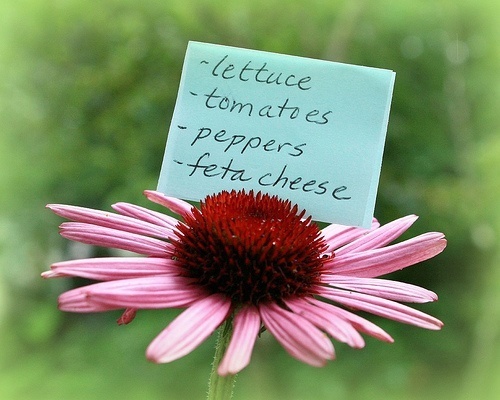 -lettuce
-tomatoes
-peppers
-feta cheese